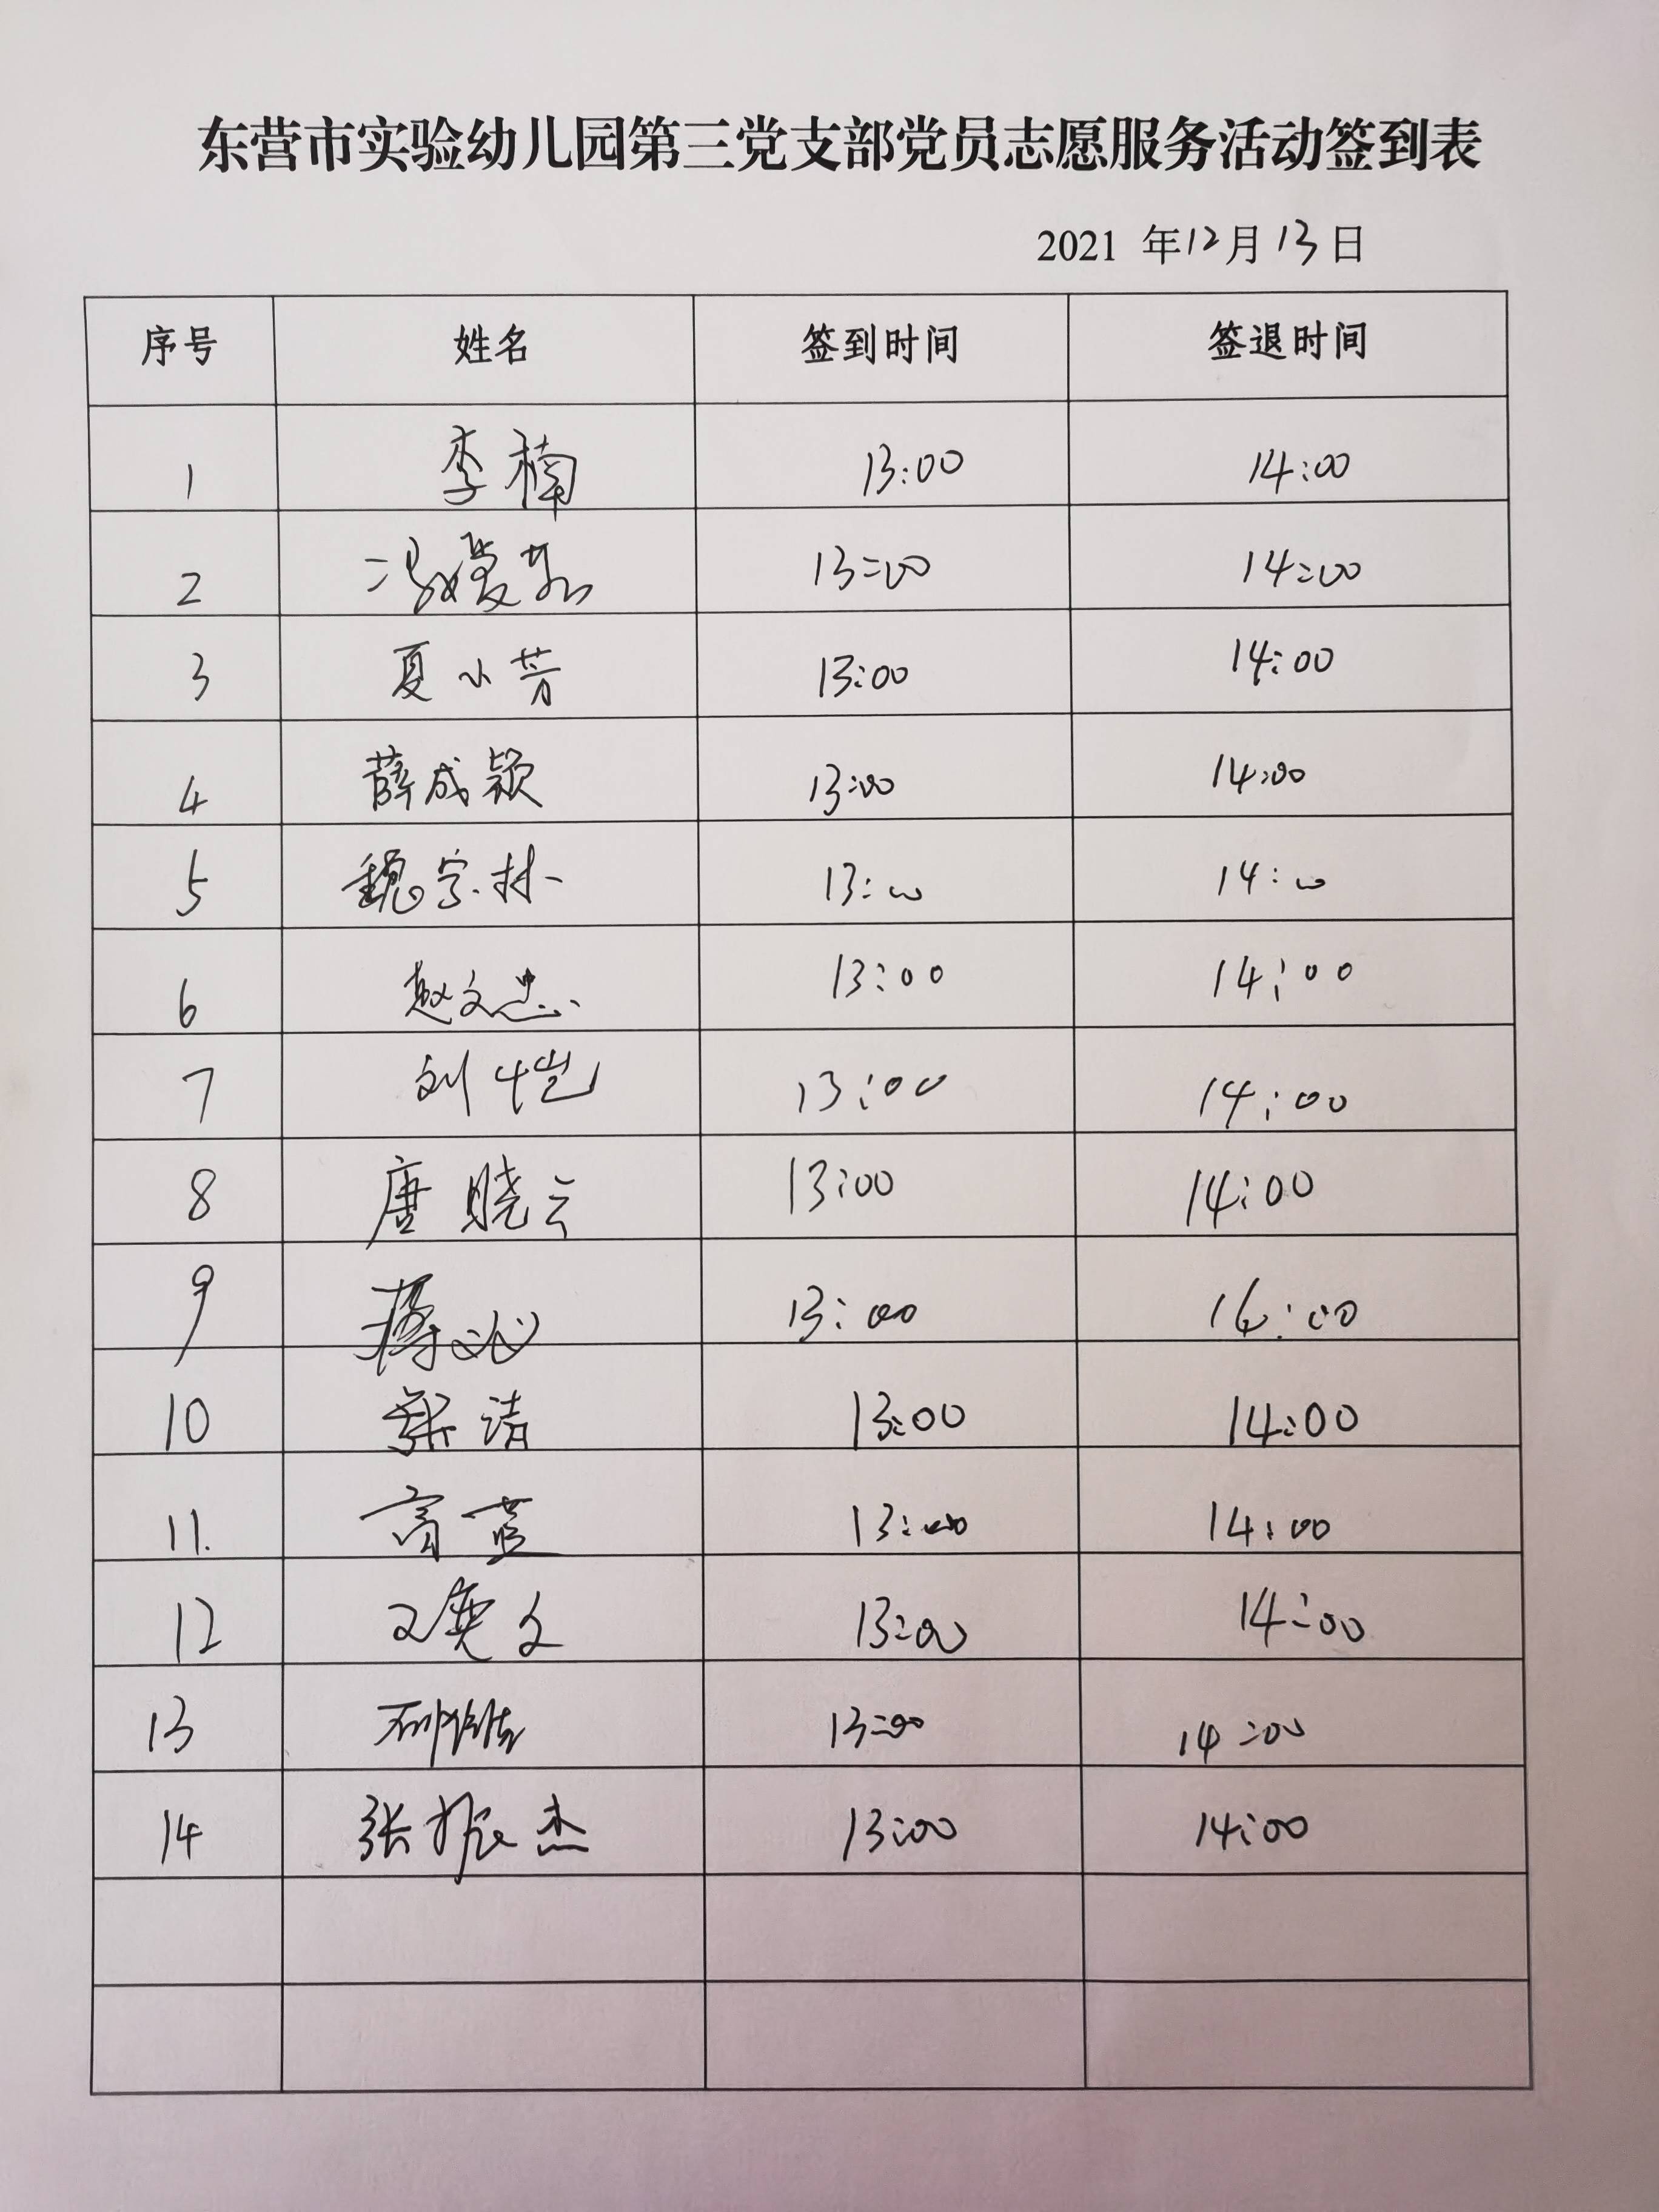 东营市实验幼儿园第三党支部党员志愿服务活动签到表
2021 年12月13日
序号 姓名 签到时间 签退时间
1 李楠 13:00 14:00
2 冯爱苏 13:00 14:00
3 夏小芳 13:00 14:00
4 薛成颖 13:00 14:00
5 魏字林 13:00 14:00
6 赵文忠 13:00 14:00
7 刘恺 13:00 14:00
8 唐晓云 13:00 14:00
9 蒋沁 13:00 14:00
10 綦洁 13:00 14:00
11. 高蓝 13:00 14:00
12 文 13:00 14:00
13 13:00 14:00
14 张振杰 13:00 14:00